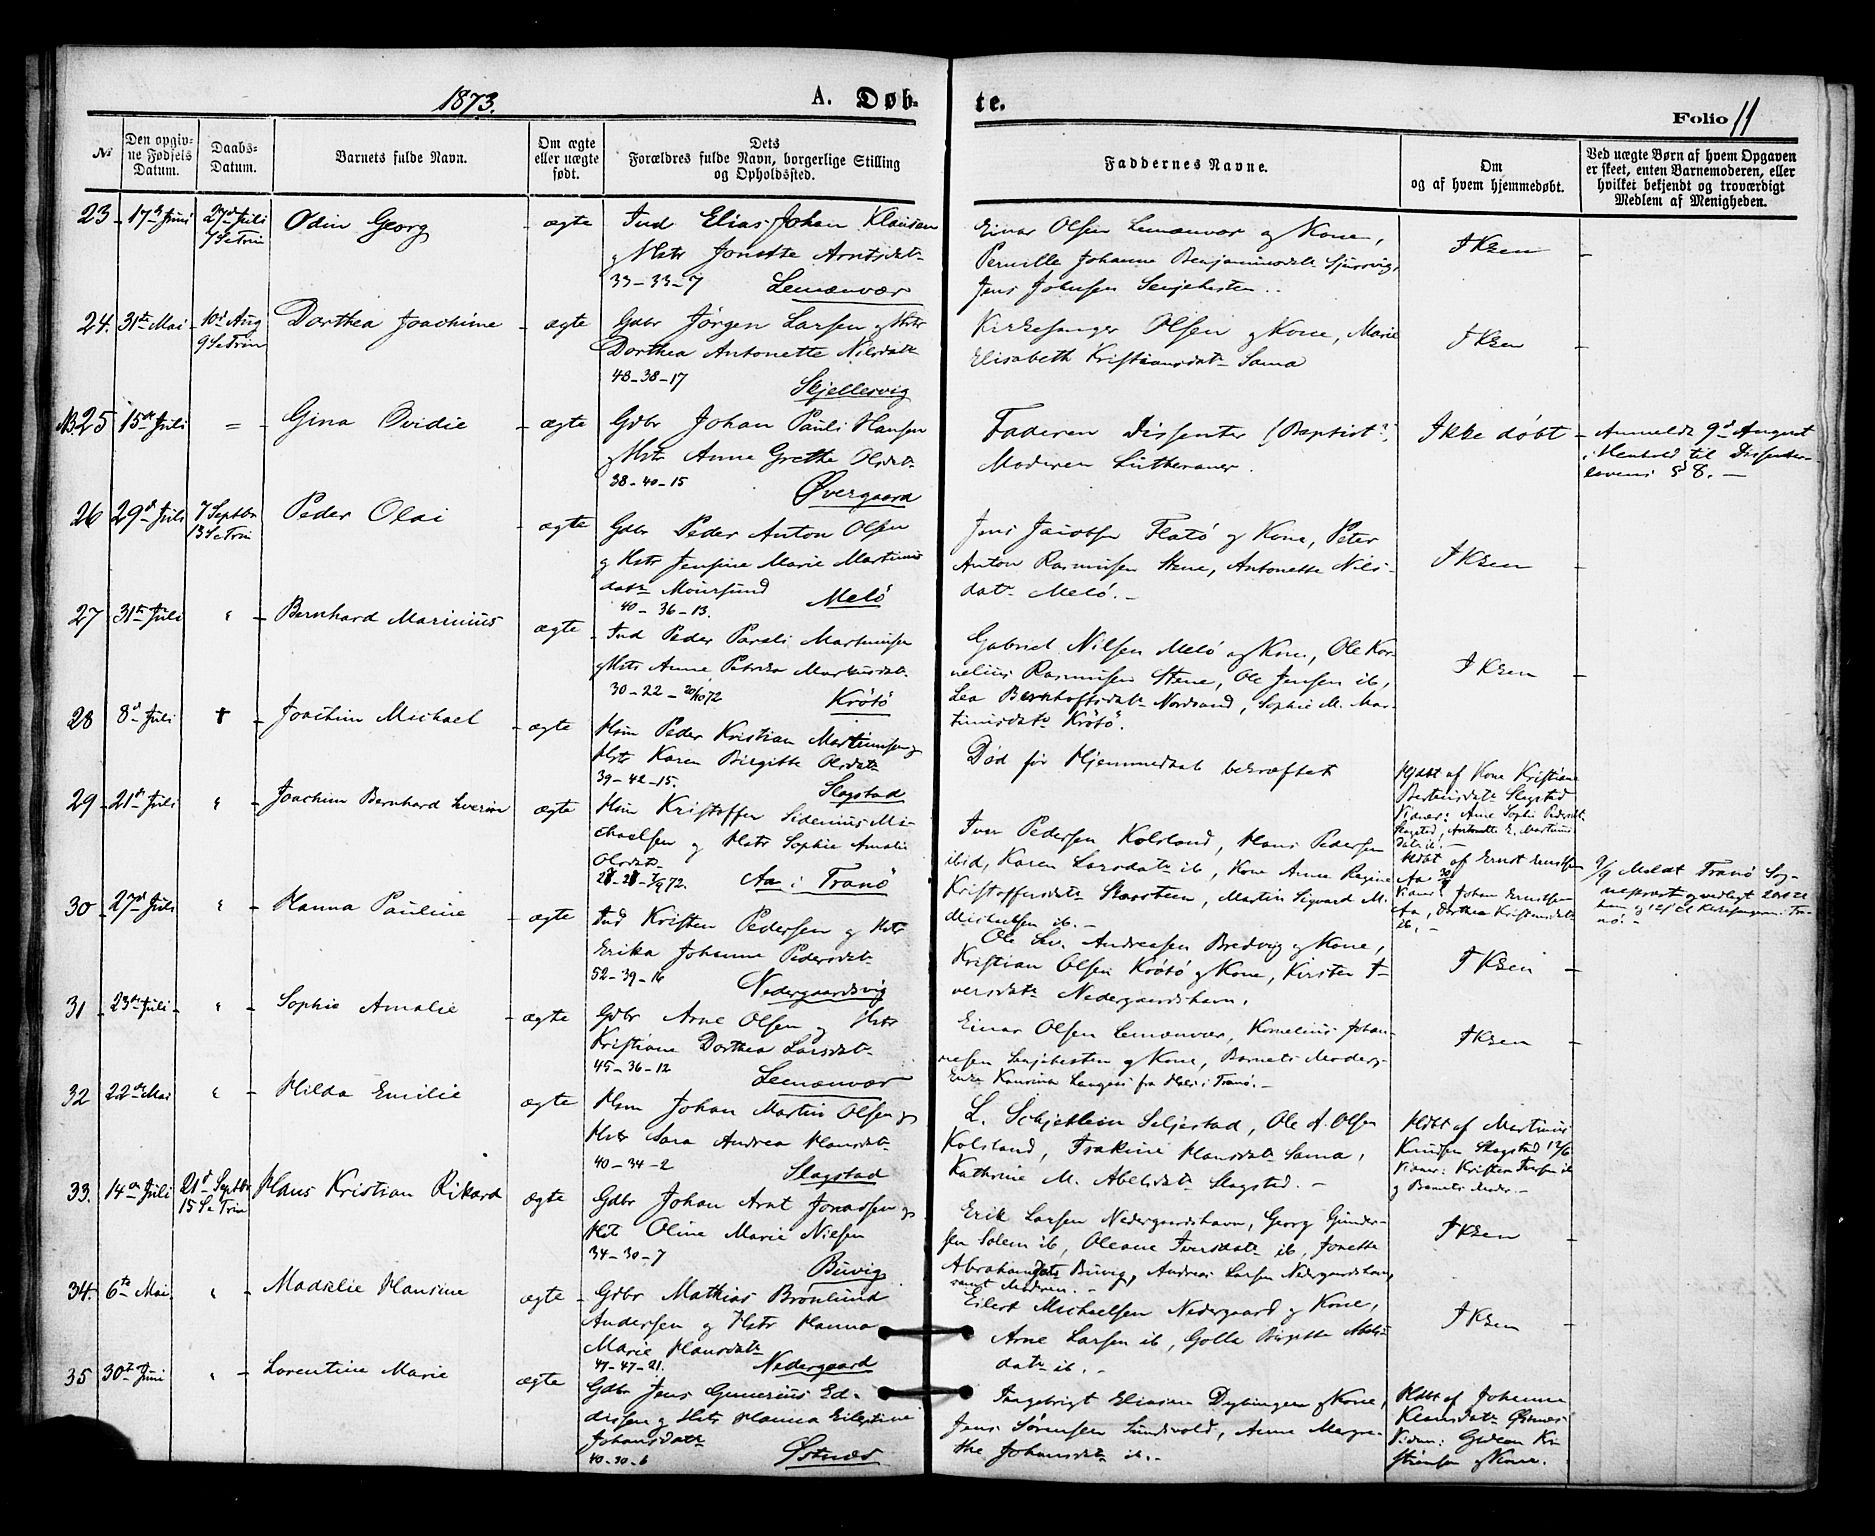 1873.
A. Døb-
te.
Folio 11
№
Den opgiv-
ne Fødsels
Datum.
Daabs-
Datum.
Barnets fulde Navn.
Om ægte
eller uægte
født.
Dets
Forældres fulde Navn, borgerlige Stilling
og Opholdssted.
Faddernes Navne.
Om
og af hvem hjemmedøbt.
Ved uægte Børn af hvem Opgaven
er skeet, enten Barnemoderen, eller
hvilket bekjendt og troværdigt
Medlem af Menigheden.
23 - 17de Juni
27d Juli
7 Se Trin
Odin Georg
- ægte
Ind Elias Johan Klausen
og Hstr Jonette Arntsdatr
33-33-7 Lemænvær
Einar Olsen Lemænvær og Kone,
Pernille Johanne Benjaminsdatr
Jens Johnsen Senjehesten.
I Ksen
24. 31te Mai
10d Aug
9 Se Trin
Dorthea Joachime
- ægte
Gdbr Jørgen Larsen og Hstr
Dorthea Antonette Nilsdatr
48-38-17
Skjellesvig
Kirkesanger Olsen og Kone, Marie
Elisabeth Kristiansdatr Sama
I Ksen
NB. 25 15de Juli
=
Gina Ovidie
- ægte
Gdbr Johan Pauli Hansen
og Hstr Anne Grethe Olsdatr
38-40-15 Øvergaard
Faderen Dissenter (Baptist),
Moderen Lutheraner.
Ikke døbt
Anmeldt 9d August
i Henhold til Dissenter-
lovens § 8.
26 29d Juli
7 Septbr
13 Se Trin
Peder Olai
- ægte
Gdbr Peder Anton Olsen
og Hstr Jensine Marie Martinus
datr Moursund
40-36-13. Melö
Jens Jacobsen Flatö og Kone, Peter
Anton Rasmusen Stene, Antonette Nils-
datr Melö.
I Ksen
27 31te Juli
"
Bernhard Marinius
ægte
Ind Peder Parali Martinusen
og Hstr Anne Petrika Markusdatr
30-22-20/10 72 Krötö
Gabriel Nilsen Melö og Kone, Ole Kor-
nelius Rasmusen Stene, Ole Jensen ib,
Lea Bernhoftsdatr Nordsand, Sophie M. Mar-
tinusdatr Krötö.
I Ksen
28 8d Juli
†
Joachim Michael
- ægte
Hsm Peder Kristian Martinusen og
Hstr Karen Birgitte Olsdatr
39-42-15. Slagstad
Död för Hjemmedaab bekræftet
Hjdbt af Kone Kristiane
Berteusdatr Slagstad
Vidner: Anne Sophie Pedersdatr
Slagstad, Antonette E. Martinus
datr ib.
29 21de Juli
"
Joachim Bernhard Severin
ægte
Hsm Kristoffer Sidenius Mi-
chaelsen og Hstr Sophie Amalie
Olsdatr
Aa i Tranö
Iver Pedersen Kolsland, Hans Pedersen
ibid, Karen Larsdatr ib, Kone Anne Regine
Kristoffersdatr, Martin Sigvard M.
Michaelsen ib.
Hdbt af Ernst Ernstsen
Aa 30/7
Vidner: Johan Ernstsen
Aa, Dorthea Kristensdatr
ib.
9/9 Meldt Tranö Sog-
neprest
30 27d Juli
"
Hanna Pauline
- ægte
Ind Kristen Pedersen og Hstr
Erika Johanne Pedersdatr
52-39-16
Nedergaardsvig
Ole Andreasen Bredvig og Kone,
Kristian Olsen Krötö og Kone, Kirsten I-
versdatr Nedergaardshavn.
I Ksen
31 23de Juli
"
Sophie Amalie
- ægte
Gdbr Arne Olsen og Hstr
Kristiane Dorthea Larsdatr
45-36-12
Lemænvær
Einar Olsen Lemænvær, Kornelius Johan-
nesen Senjehesten og Kone, Barnets Moders,
Enke fra i Tranö.
I Ksen
32 22de Mai
"
Hilda Emilie
ægte
Hsm Johan Martin Olsen og
Hstr Sara Andrea Hansdatr
40-34-2
Slagstad
L. Schjetlein Seljestad, Ole A. Olsen
Kolsland, Hansdatr Sama,
Kathrine M. Abelsdatr Slagstad.
Hdbt af Martinus
Knudsen Slagstad 12/6
Vidner: Kristen Iversen ib
og Barnets Moder.
33. 14de Juli
21d Septbr
15 Se Trin
Hans Kristian Rikard
ægte
Gdbr Johan Arnt Jonassen og
Hst Oline Marie Nielsen
34-30-7
Buvig
Erik Larsen Nedergaardshavn, Georg Gunder-
sen Solem ib, Oleane Iversdatr ib, Jonette
Abrahamsdatr Buvig, Andreas Larsen Nedergaardshavn,
samt Moderen.
I Ksen
34. 6te Mai
"
Madelie Hansine
ægte
Gdbr Mathias Brönlund
Andersen og Hstr Hanna
Marie Hansdatr
47-47-21. Nedergaard
Eilert Michaelsen Nedergaard og Kone,
Arne Larsen ib, Golla Birgitte Abels
datr ib.
I Ksen
35 30te Juni
"
Lorentine Marie
ægte
Gdbr Jens Gunerius Ed-
dissen og Hstr Hanna Eilertine
Johansdatr
40-30-6 Östnæs
Ingebrigt Eliasen Dybingen og Kone,
Jens Sörensen Sundsvold, Anne Margre-
the Johansdatr ib.
Hdbt af Johanna
Klausdatr Östnæs
Vidn: Gideon Kri-
stensen og Kone.